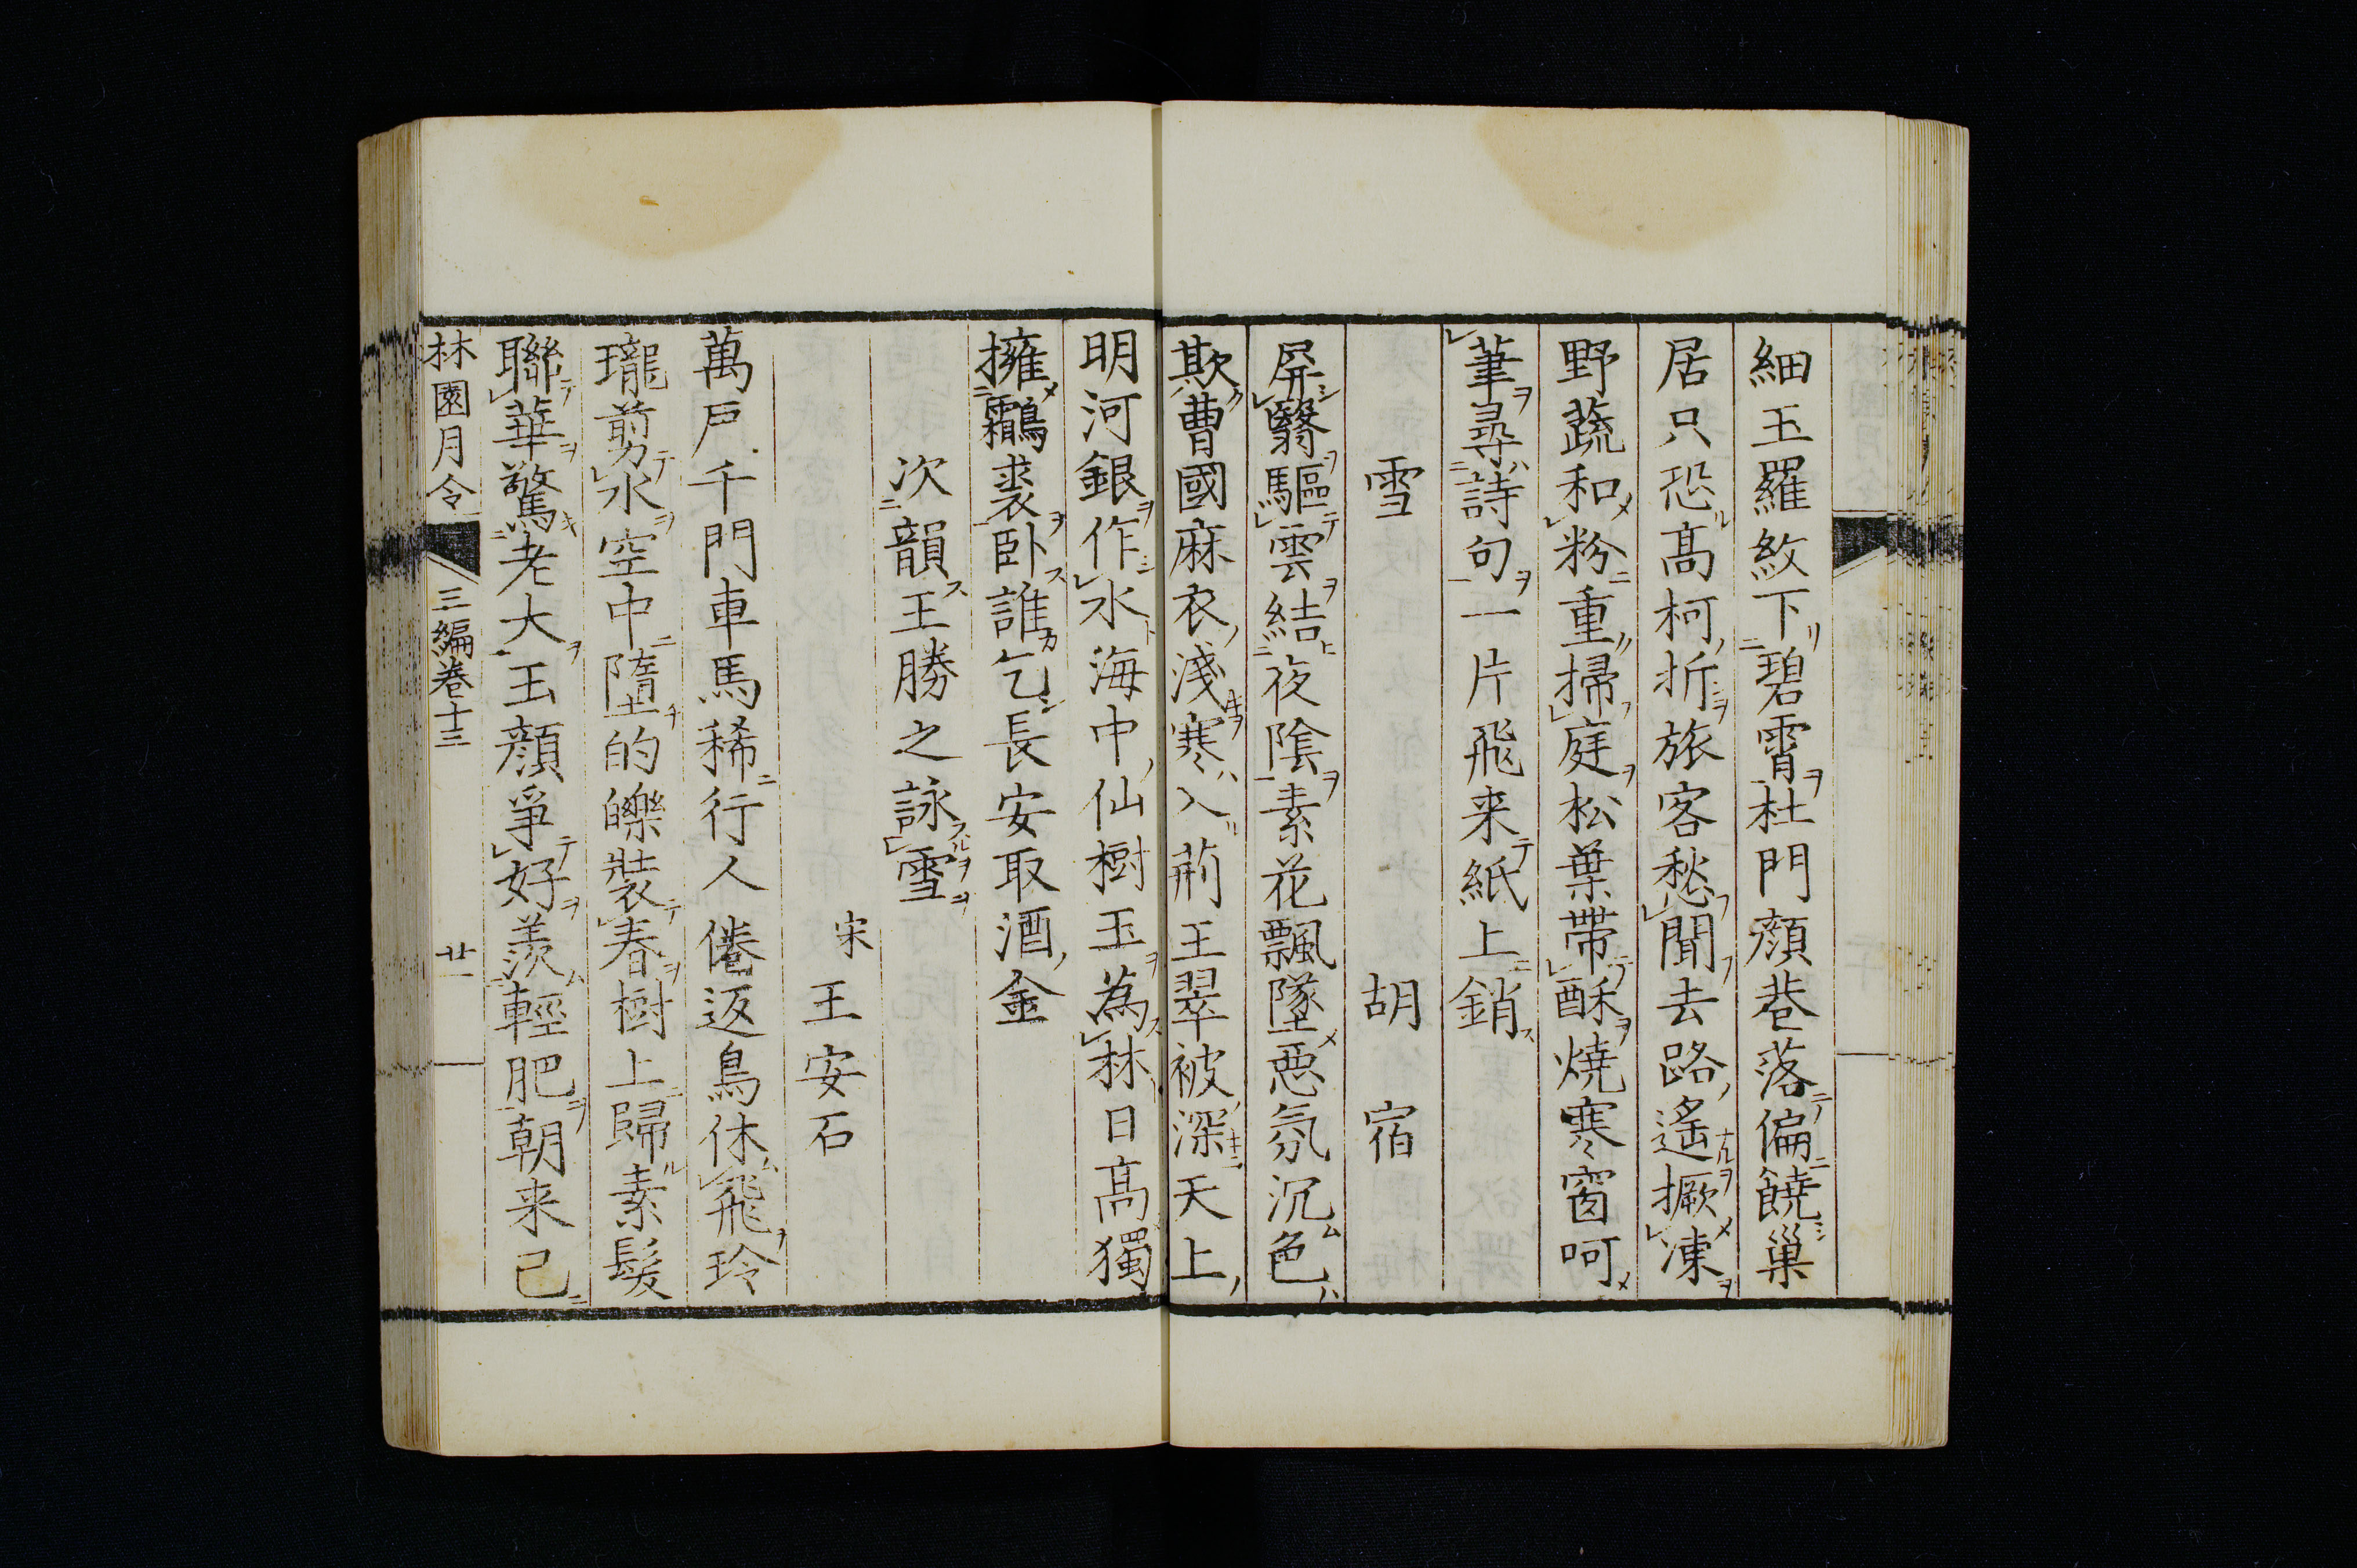 細玉羅紋下碧霄杜門顔巷落偏饒巢
居只恐髙柯折旅客愁聞去路遙撅凍
野蔬和粉重掃庭松葉帶酥燒寒窗呵
筆尋詩句一片飛来紙上銷
雪 胡宿
屏翳驅雲結夜陰素花飄墜惡氛沉色
欺曹國麻衣淺寒入荊王翠被深天上
明河銀作水海中仙樹玉為林日髙獨
擁鸘裘卧誰乞長安取酒金
次韻王勝之詠雪
宋 王安石
萬戶千門車馬稀行人倦返鳥休飛玲
瓏剪水空中墮的皪裝春樹上歸素髮
聯華驚老大玉顔爭好羨輕肥朝来已
林園月令 三編卷十三 廿一